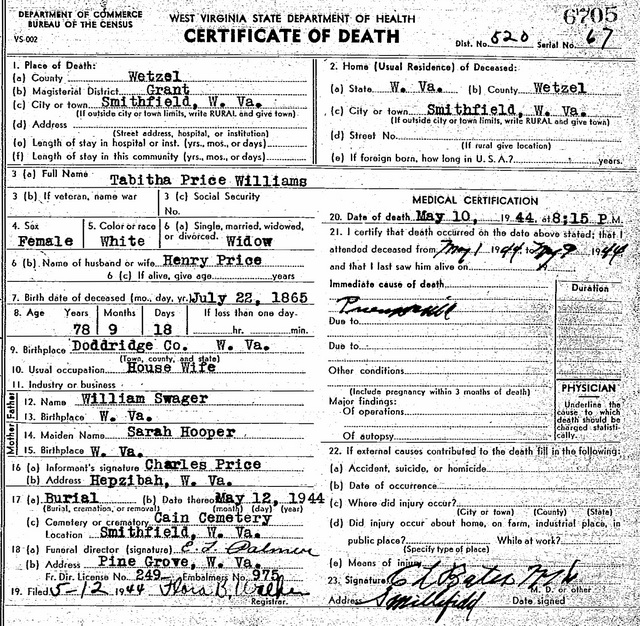 DEPARTMENT OF COMMERCE
BUREAU OF THE CENSUS
VS-002
WEST VIRGINIA STATE DEPARTMENT OF HEALTH
CERTIFICATE OF DEATH
6705
Dist. No. 520 Serial No. 67
1. Place of Death:
(a) County Wetzel
(b) Magisterial District Grant
(c) City or town Smithfield, W. Va.
(If outside city or town limits, write RURAL and give town)
(d) Address
(Street address, hospital, or institution)
(e) Length of stay in hospital or inst. (yrs., mos., or days)
(f) Length of stay in this community (yrs., mos., or days)
2. Home (Usual Residence) of Deceased:
(a) State W. Va. (b) County Wetzel
(c) City or town Smithfield, W. Va.
(If outside city or town limits, write RURAL and give town)
(d) Street No.
(If rural give location)
(e) If foreign born, how long in U. S. A.? years.
3 (a) Full Name Tabitha Price Williams
3 (b) If veteran, name war
3 (c) Social Security No.
4. Sex Female
5. Color or race White
6 (a) Single, married, widowed, or divorced. Widow
6 (b) Name of husband or wife Henry Price
6 (c) If alive, give age years
7. Birth date of deceased (mo., day, yr.) July 22, 1865
8. Age Years Months Days If less than one day
78 9 18 hr. min.
9. Birthplace Doddridge Co. W. Va.
(Town, county, and state)
10. Usual occupation House Wife
11. Industry or business
Father
12. Name William Swager
13. Birthplace W. Va.
Mother
14. Maiden Name Sarah Hooper
15. Birthplace W. Va.
16 (a) Informant's signature Charles Price
(b) Address Hepzibah, W. Va.
17 (a) Burial (b) Date thereof May 12, 1944
(Burial, cremation, or removal) (month) (day) (year)
(c) Cemetery or crematory Cain Cemetery
Location Smithfield, W. Va.
18 (a) Funeral director (signature) E. L. Palmer
(b) Address Pine Grove, W. Va.
Fr. Dir. License No. 249 Embalmers No. 975
19. Filed 5-12 1944 Flora B.
Registrar.
MEDICAL CERTIFICATION
20. Date of death May 10, 1944, at 8:15 P.M.
21. I certify that death occurred on the above stated; that I
attended deceased from May 1 1944 to May 9 1944
and that I last saw him alive on
Immediate cause of death
Duration
Due to
Due to
Other conditions
(Include pregnancy within 3 months of death)
Major findings:
Of operations
Of autopsy
PHYSICIAN
Underline the cause to which death should be charged statistically.
22. If external causes contributed to the death fill in the following:
(a) Accident, suicide, or homicide
(b) Date of occurrence
(c) Where did injury occur?
(City or town) (County) (State)
(d) Did injury occur about home, on farm, industrial place, in
public place? While at work?
(Specify type of place)
(e) Means of injury
23. Signature
M. D. or other
Address Smithfield Date signed